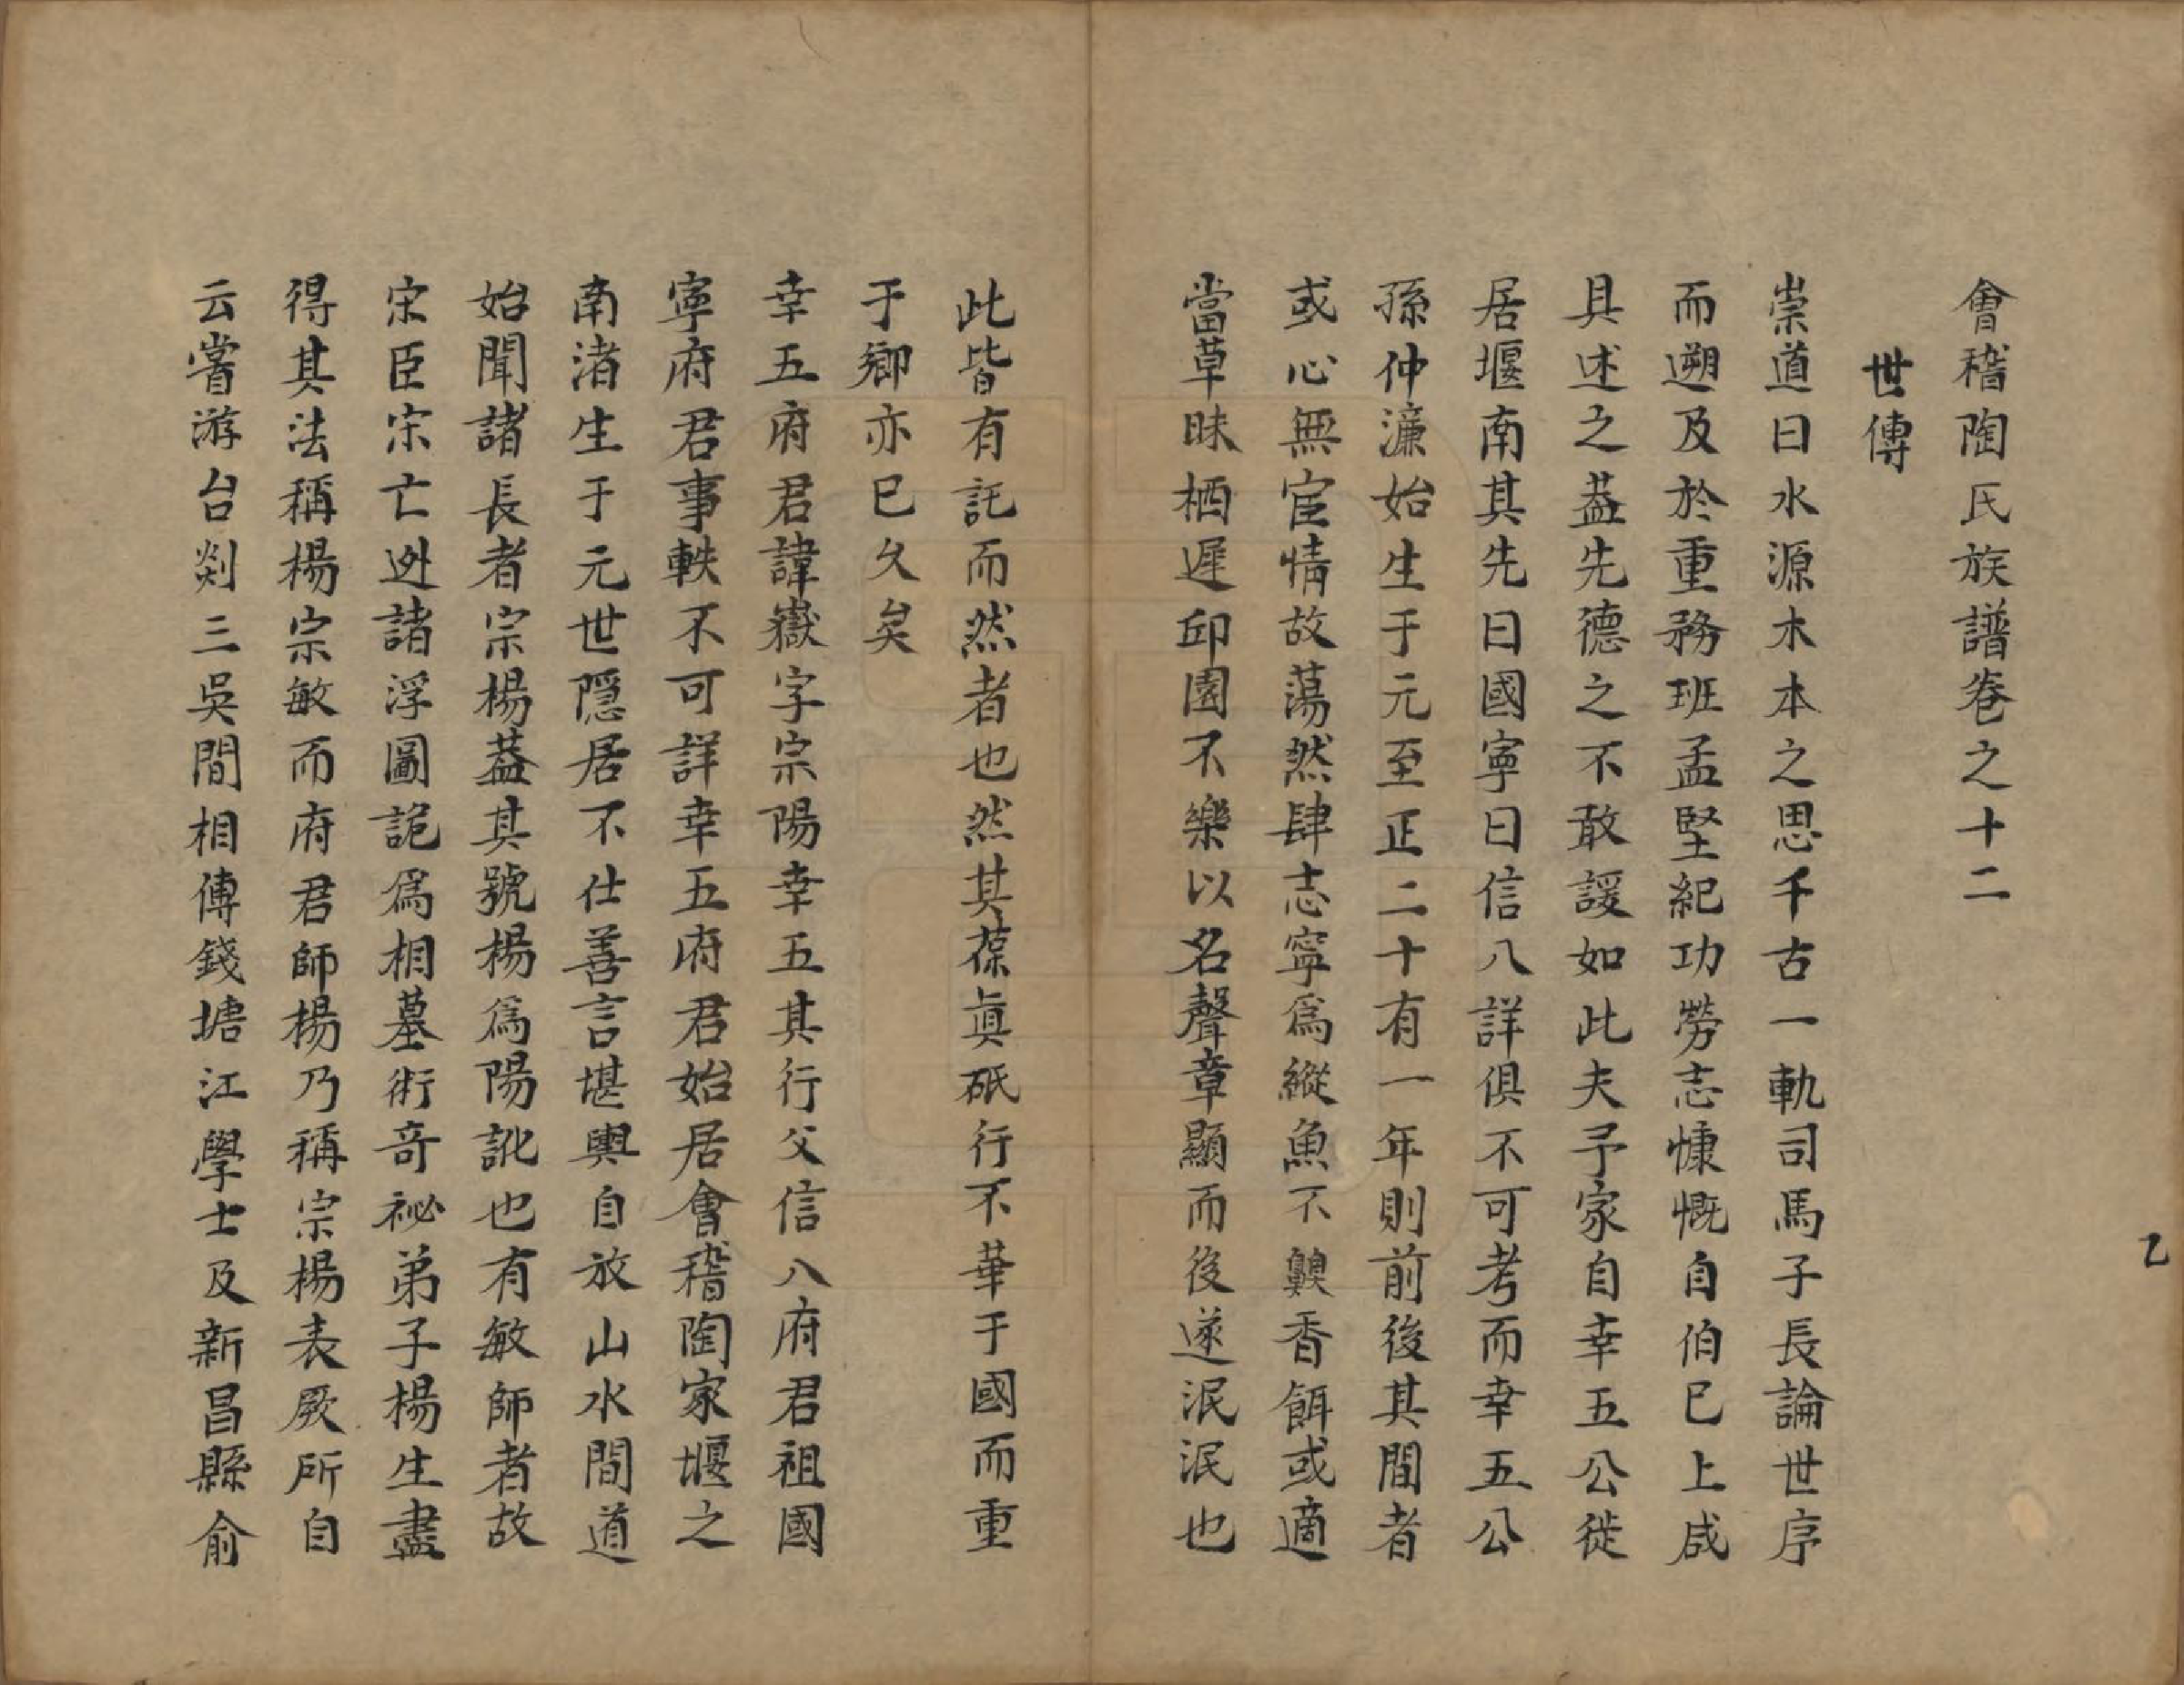 會稽陶氏族譜卷之十二
世傳
崇道曰水源木本之思千古一軌司馬子長論世序
而遡及於重務班孟堅紀功勞志慷慨自伯已上咸
具述之葢先德之不敢諼如此夫予家自幸五公徙
居堰南其先曰國寧曰信八詳俱不可考而幸五公
孫仲濂始生于元至正二十有一年則前後其間者
或心無宦情故蕩然肆志寧爲縱魚不齅香餌或適
當草昧栖遲邱園不樂以名聲章顯而後遂泯泯也
此皆有託而然者也然其葆眞砥行不華于國而重
于鄉亦已久矣
幸五府君諱嶽字宗陽幸五其行父信八府君祖國
寧府君事軼不可詳幸五府君始居會稽陶家堰之
南渚生于元世隱居不仕善言堪輿自放山水間道
始聞諸長者宗楊葢其號楊爲陽訛也有敏師者故
宋臣宋亡迯諸浮圖詭爲相墓術奇祕弟子楊生盡
得其法稱楊宗敏而府君師楊乃稱宗楊表厥所自
云嘗游台剡三吳間相傳錢塘江學士及新昌縣俞
乙